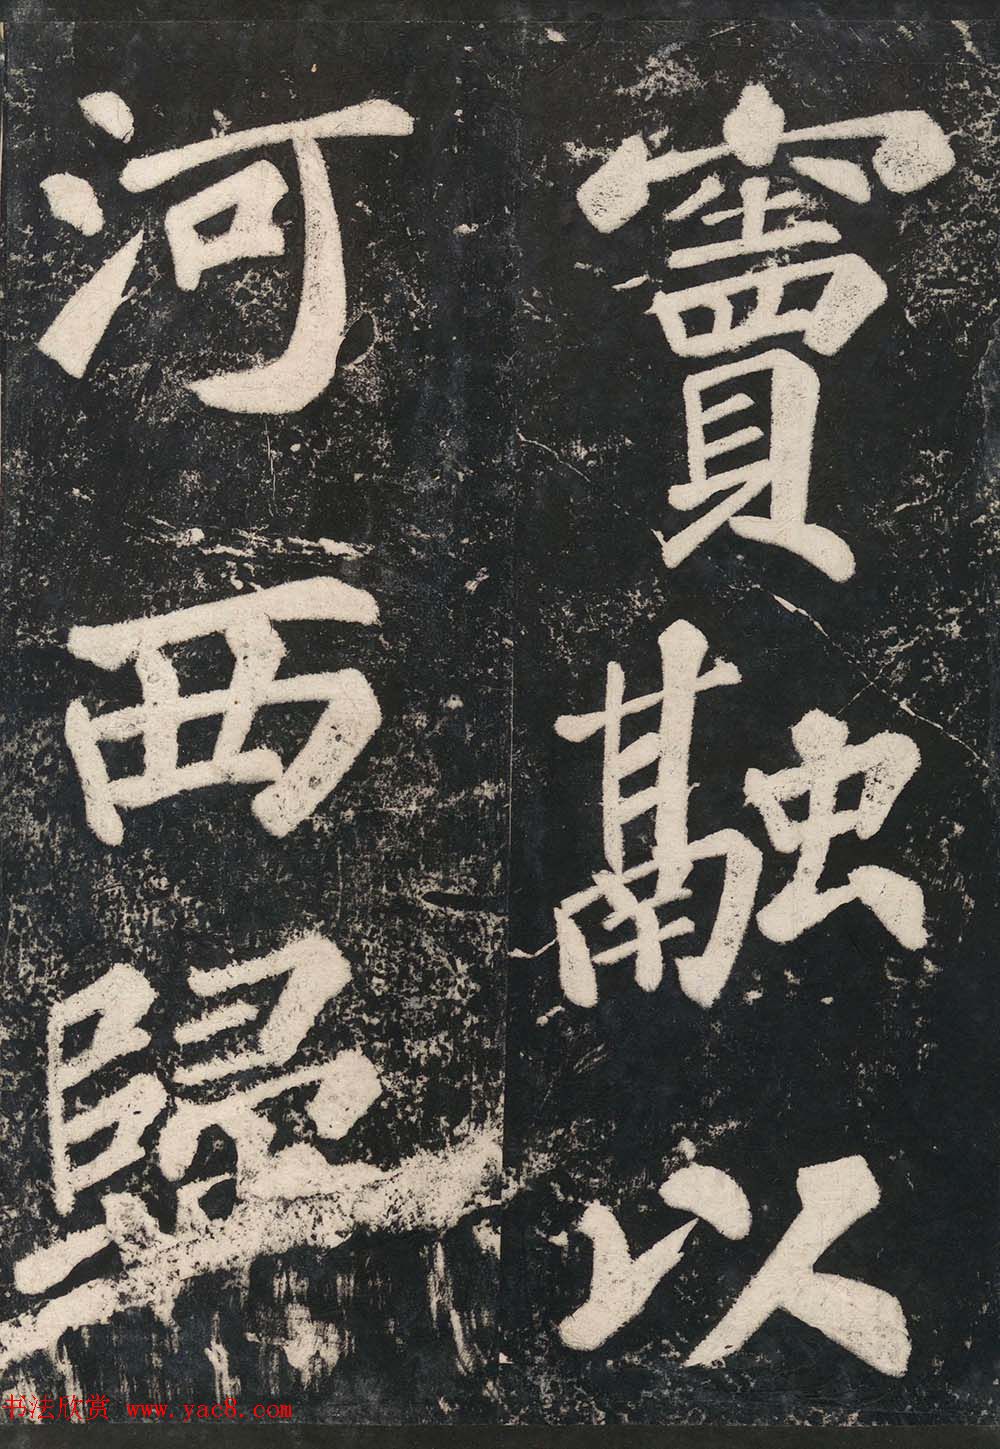 竇融以
河西歸
书法欣赏 www.yac8.com